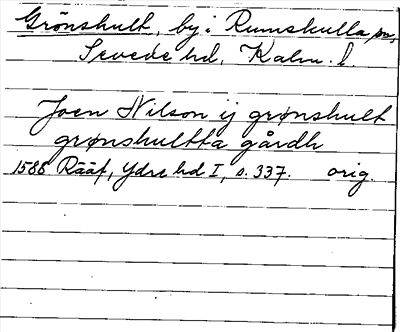 Grönshult, by i Rumskulla sn,
Sevede hd, Kalm. l.
Joen Nilson ij grønshult
grønshultta gårdh
1586 Rääf, Ydre hd I, s. 337. orig.